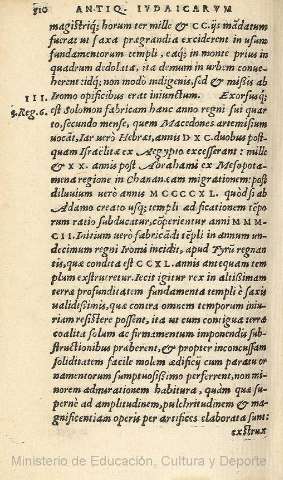 810 ANTIQ. IVDAICARVM
magistriq; horum ter mille & CC. ijs mādatum
fuerat ut saxa prægrandia exciderent in usum
fundamentorum templi, eaq; in monte prius in
quadrum dedolata, ita demum in urbem conue-
herent: idq; non modò indigenis, sed & missis ab
III. Iromo opificibus erat iniunctum. Exorsusq;
3. Reg. 6. est Solomon fabricam hanc anno regni sui quar
to, secundo mense, quem Macedones artemisium
uocāt, Iar uerò Hebræi, annis DXC. duobus post-
quam Israëlitæ ex Aegypto excesserant: mille
& XX. annis post Abrahami ex Mesopota
mena regione in Chananæam migrationem: post
diluuium uerò annis MCCCCXL. quòd si ab
Adamo creato usq; templi ædificationem tēpo
rum ratio subducatur, cōperientur anni MMM-
CII. Initium uerò fabricādi tēpli in annum un-
decimum regni Iromi incidit, apud Tyrū regnan
tis, quæ condita est CCXL. annis antequam tem
plum exstrueretur. Iecit igitur rex in altissimam
terra profunditatem fundamenta templi è saxis
ualidissimis, quæ contra omnem temporum iniu-
riam resistere possent, ita ut cum contigua terra
coalita solum ac firmamentum imponendis sub-
structionibus præberent, & propter inconcussam
soliditatem facile molem ædificij cum paratu or
namentorum sumptuosissimo perferrent, non mi-
norem admirationem habitura, quàm quæ su-
pernè ad amplitudinem, pulchritudinem & ma-
gnificentiam operis per artifices elaborata sunt:
exstrux
Ministerio de Educación, Cultura y Deporte